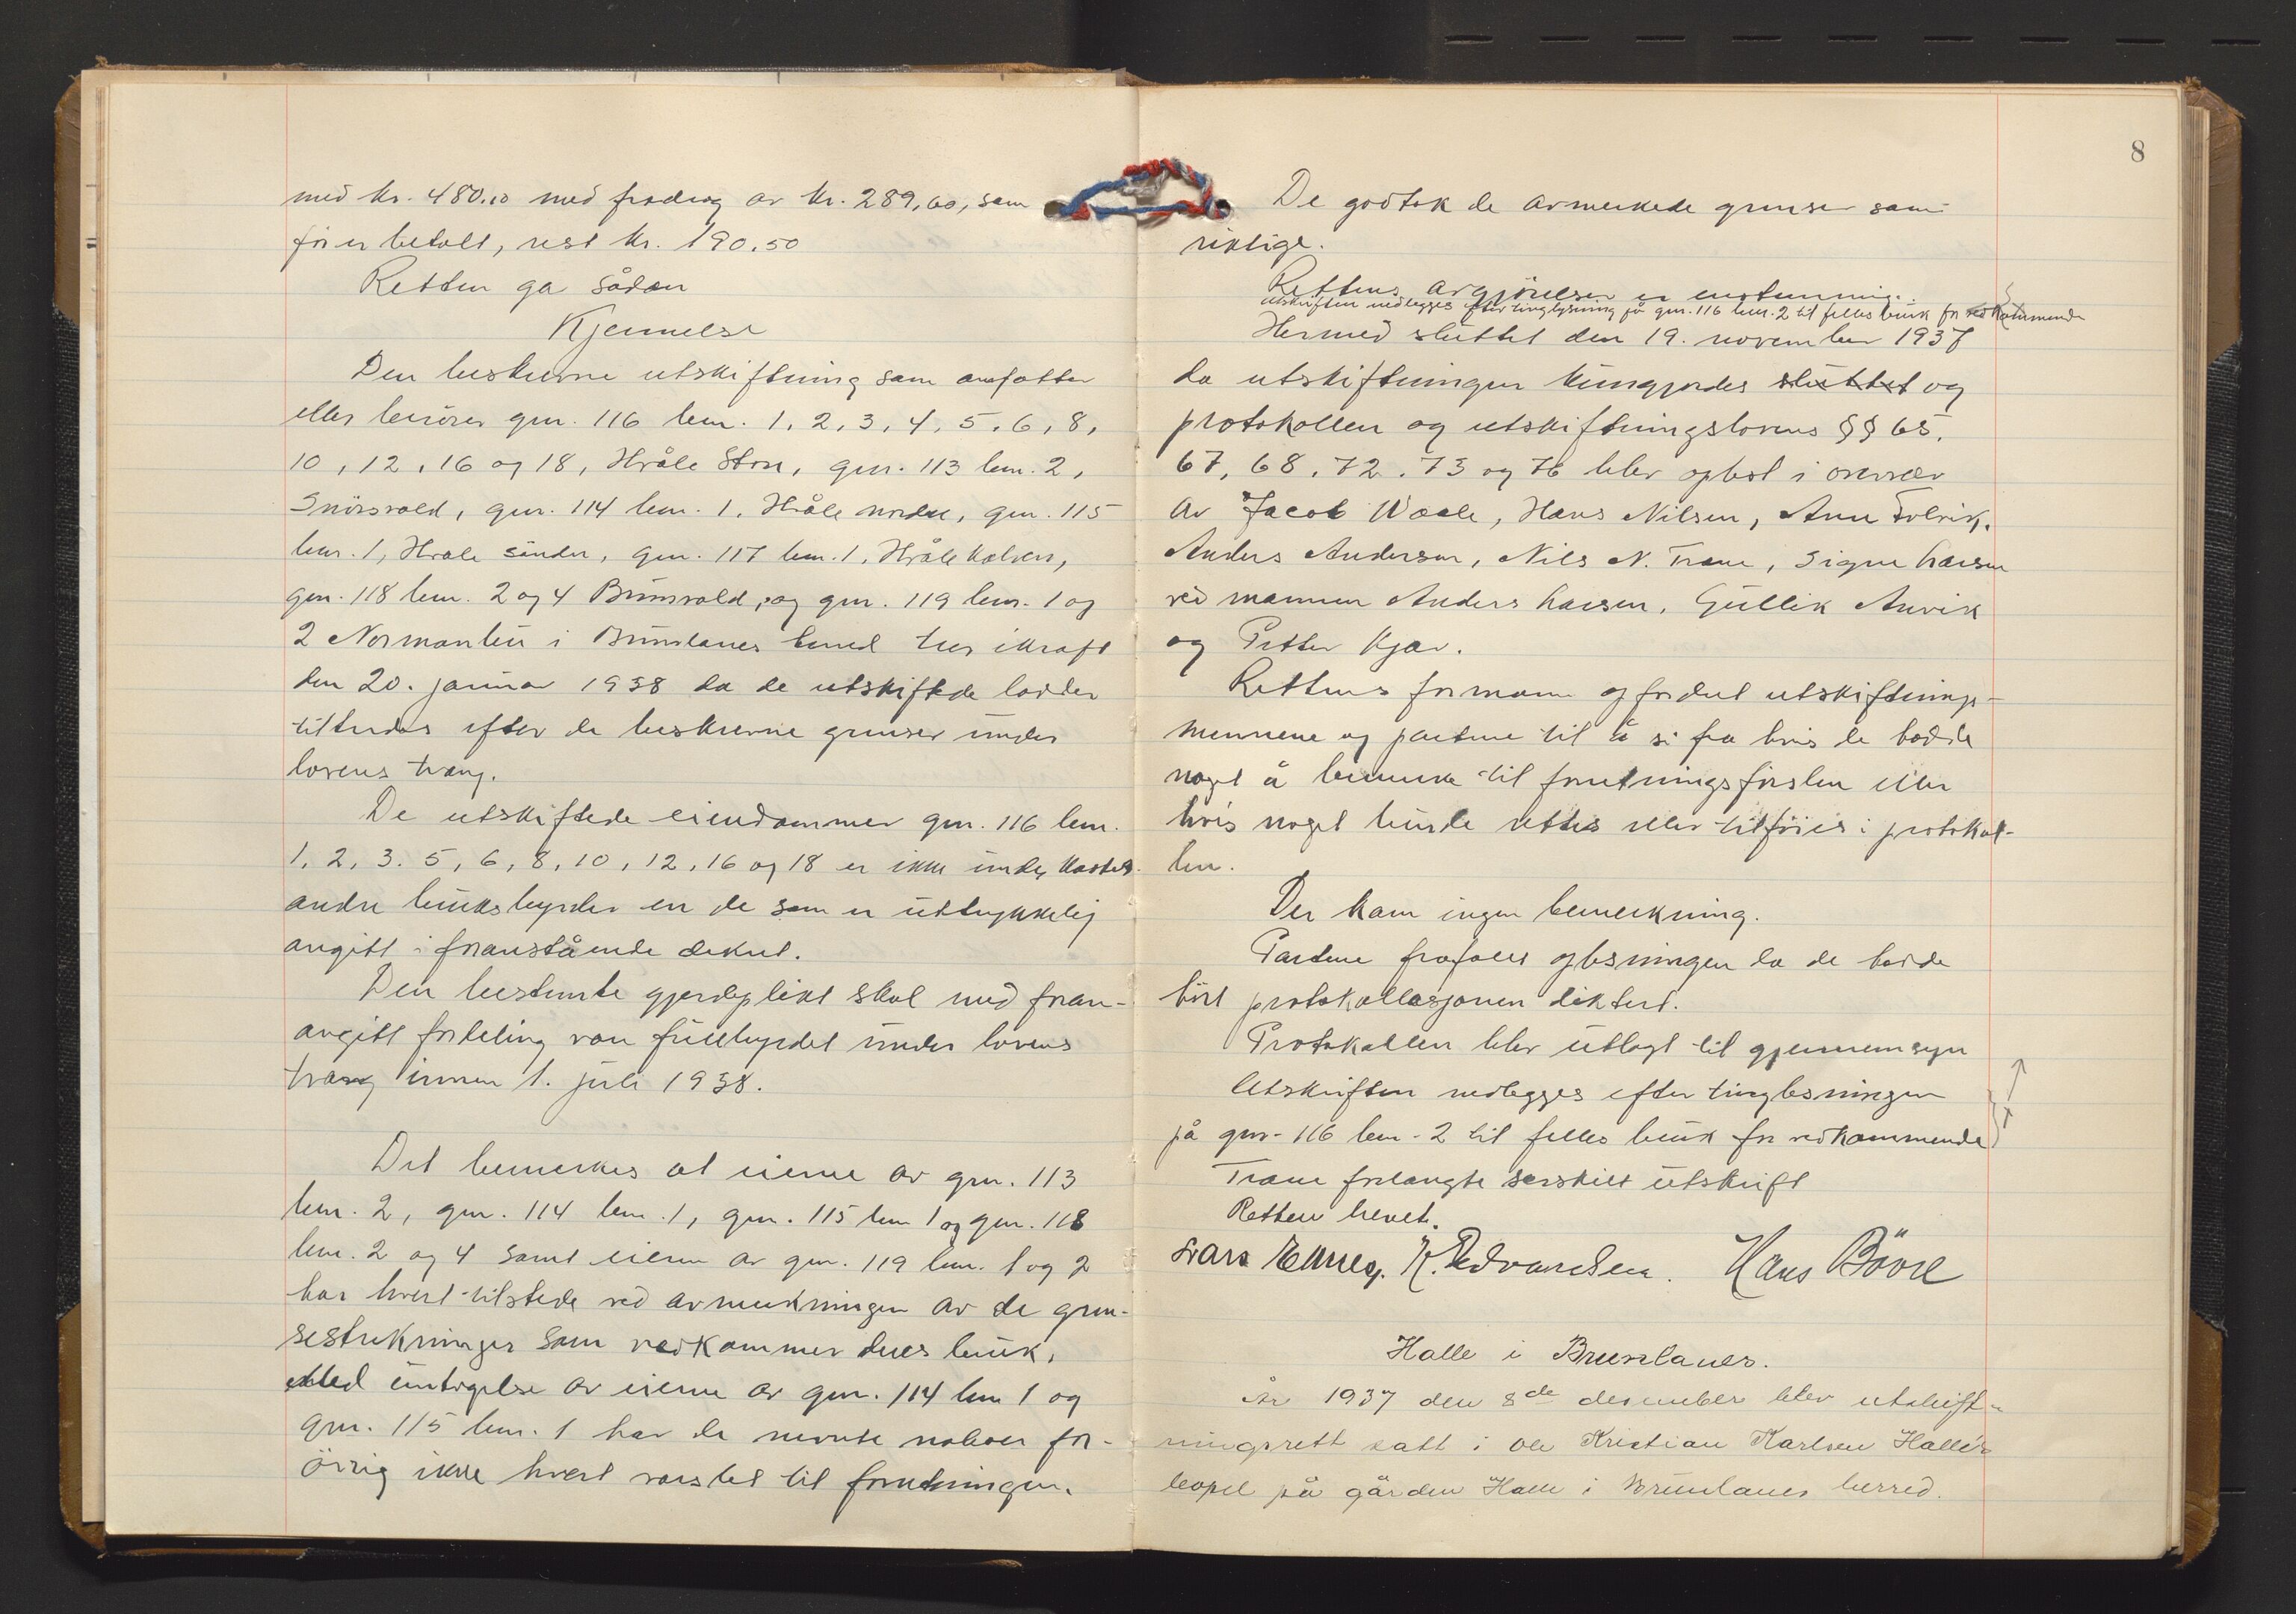 med kr. 480.10 med fradrag av kr. 289,60, som
før er betalt, rest kr. 190.50
Retten ga sådan
Kjennelse
Den beskrevne utskiftning som omfatter
eller berører gnr. 116 bnr. 1, 2, 3, 4, 5, 6, 8,
10, 12, 16 og 18, Hvåle Store, gnr. 113 bnr. 2,
gnr. 114 bnr. 1, Hvåle nordre, gnr. 115
bnr. 1, Hvåle søndre, gnr. 117 bnr. 1, Hvåle
gnr. 118 bnr. 2 og 4 Brunsvold, og gnr. 119 bnr. 1 og
2 i Brunlanes herred trer i kraft
den 20. januar 1938 da de utskiftede lodder
tiltredes efter de beskrevne grenser under
lovens tvang.
De utskiftede eiendommer gnr. 116 bnr.
1, 2, 3, 5, 6, 8, 10, 12, 16 og 18 er ikke underkastet
andre bruksbyrder en de som er uttrykkelig
angitt i foranstående dekret.
Den bestemte gjerdeplikt skal med foran-
angitt fordeling være fullbyrdet under lovens
tvang innen 1. juli 1938.
Det bemerkes at eierne av gnr. 113
bnr. 2, gnr. 114 bnr. 1, gnr. 115 bnr 1 og gnr. 118
bnr. 2 og 4 samt eieren av gnr. 119 bnr. 1 og 2
har hvert tilstede ved avmerkningen av de gren-
sestrekninger som vedkommer deres bruk.
Med untagelse av eierne av gnr. 114 bnr 1 og
gnr. 115 bnr. 1 har de nevnte naboer for-
øvrig ikke hvert varslet til forretningen.
8
De godtok de avmerkede grenser som
riktige.
Rettens avgjørelser er enstemmig.
Utskriften nedlegges efter tinglysning på gnr. 116 bnr. 2 til felles bruk for vedkommende
Hermed sluttet den 19. november 1937
da utskiftningen kungjordes sluttet og
protokollen og utskiftningslovens §§ 65,
67, 68, 72, 73 og 76 blev oplest i overvær
av Jacob Wåle, Hans Nilsen, Anne
Anders Andersen, Nils N. Trane, Signe Larsen
ved mannen Anders Larsen, Gullik Anvik
og Petter Kjær.
Rettens formann opfordret utskiftnings-
mennene og partene til å si fra hvis de hadde
noget å bemerke til forretningsførslen eller
hvis noget burde rettes eller tilføies i protokol-
len.
Der kom ingen bemerkning.
Partene frafallt oplesningen da de hadde
hørt protokollasjonen diktert.
Protokollen blev utlagt til gjennemsyn
Utskriften nedlegges efter tinglesningen
på gnr. 116 bnr. 2 til felles bruk for vedkommende
Trane forlangte særskilt utskrift
Retten hevet.
Lars K. Edvardsen. Hans Bøvre
Halle i Brunlanes.
År 1937 den 8de desember blev utskift-
ningsrett satt i Ole Kristian Karlsen Halle's
bopel på gården Halle i Brunlanes herred.